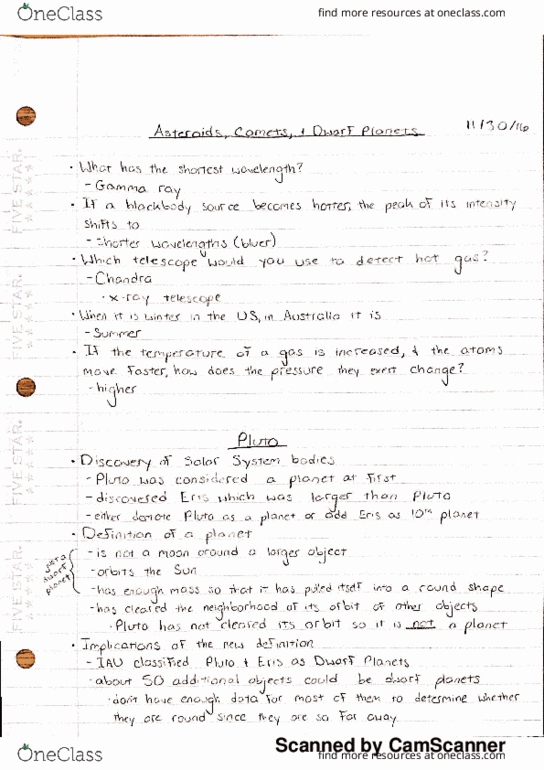 OneClass
find more resources at oneclass.com
Asteroids, Comets, & Dwarf Planets
11/30/16
• What has the shortest wavelength?
- Gamma ray
• If a blackbody source becomes hotter, the peak of its intensity
shifts to
- Shorter wavelengths (bluer)
• Which telescope would you use to detect hot gas?
- Chandra
• x-ray telescope
• When it is winter in the US, in Australia it is
- Summer
• If the temperature of a gas is increased, & the atoms
move faster, how does the pressure they exert change?
- higher
Pluto
• Discovery of Solar System bodies
- Pluto was considered a planet at first
- discovered Eris which was larger than Pluto
- either demote Pluto as a planet or add Eris as 10th planet
• Definition of a planet
- is not a moon around a larger object
- orbits the Sun
- has enough mass so that it has pulled itself into a round shape
dwarf
planet
- has cleared the neighborhood of its orbit of other objects
• Pluto has not cleared its orbit so it is not a planet
• Implications of the new definition
- IAU classified Pluto & Eris as Dwarf Planets
- about 50 additional objects could be dwarf planets
• don't have enough data for most of them to determine whether
they are round since they are so far away
FIVE STAR.
FIVE STAR.
FIVE STAR.
FIVE STAR.
OneClass
find more resources at oneclass.com
Scanned by CamScanner